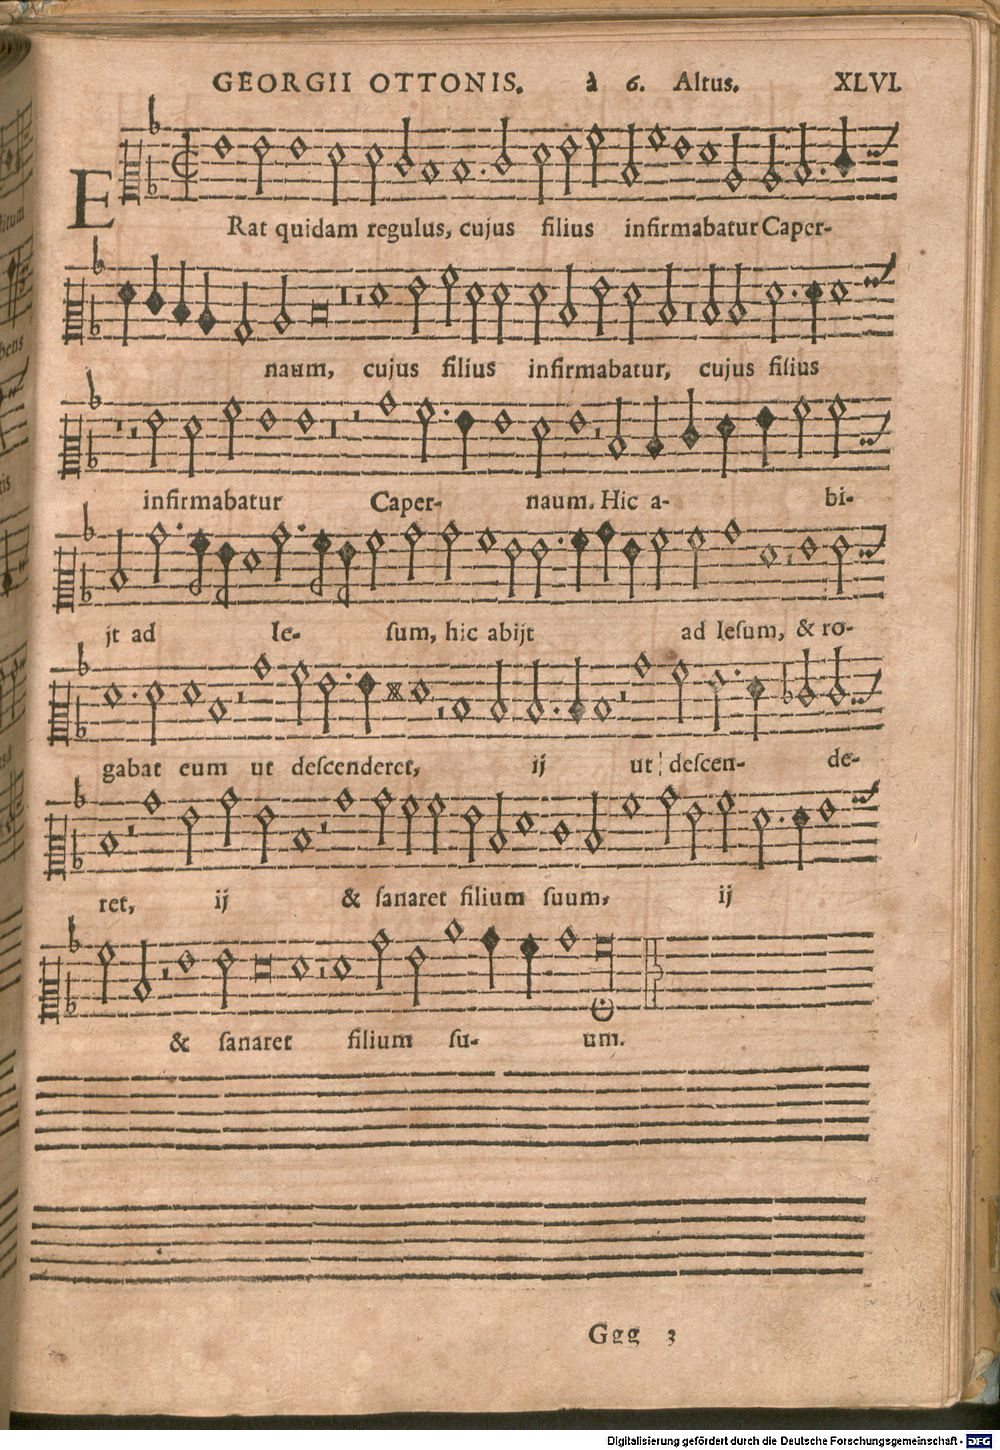 GEORGII OTTONIS. à 6. Altus. XLVI.
ERat quidam regulus, cujus filius infirmabatur Caper-
naum, cujus filius infirmabatur, cujus filius
infirmabatur Caper- naum. Hic a- bi-
jt ad Ie- ſum, hic abijt ad Ieſum, & ro-
gabat eum ut deſcenderet, ij ut deſcen- de-
ret, ij & ſanaret filium ſuum, ij
& ſanaret filium ſu- um.
Ggg 3
Digitalisierung gefördert durch die Deutsche Forschungsgemeinschaft - DFG